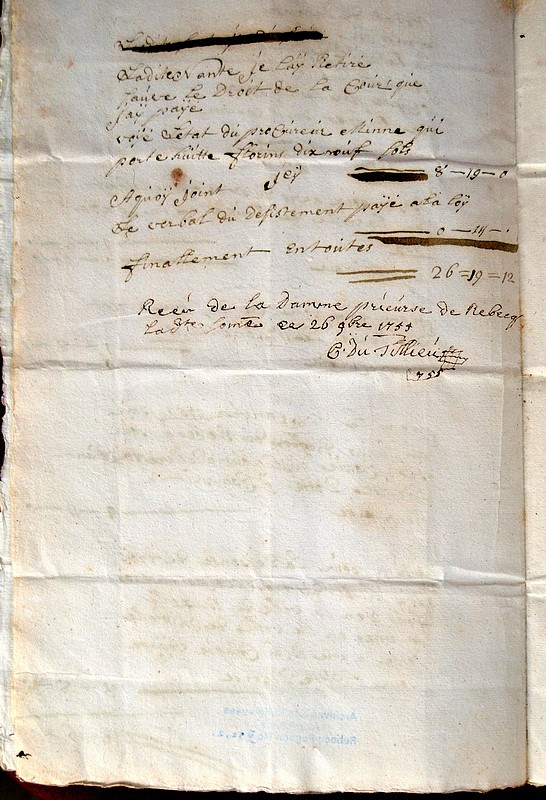 Ladite Vante je lay Retiré
sauve le Droit de la Cour que
Jay payé
voyé L'etat du procureur Minne qui
porte huitte florins dix nouf sols
Jcy 8-19-0
Aquoÿ Joint
Le verbal du Desistement payé a la loÿ
0-14-
finallement Entoutes
26=19=12
Receu de la Damme prieurse de Rebecq
la dte somē ce 26 9bre 1755
C: Du Tillieu
1755